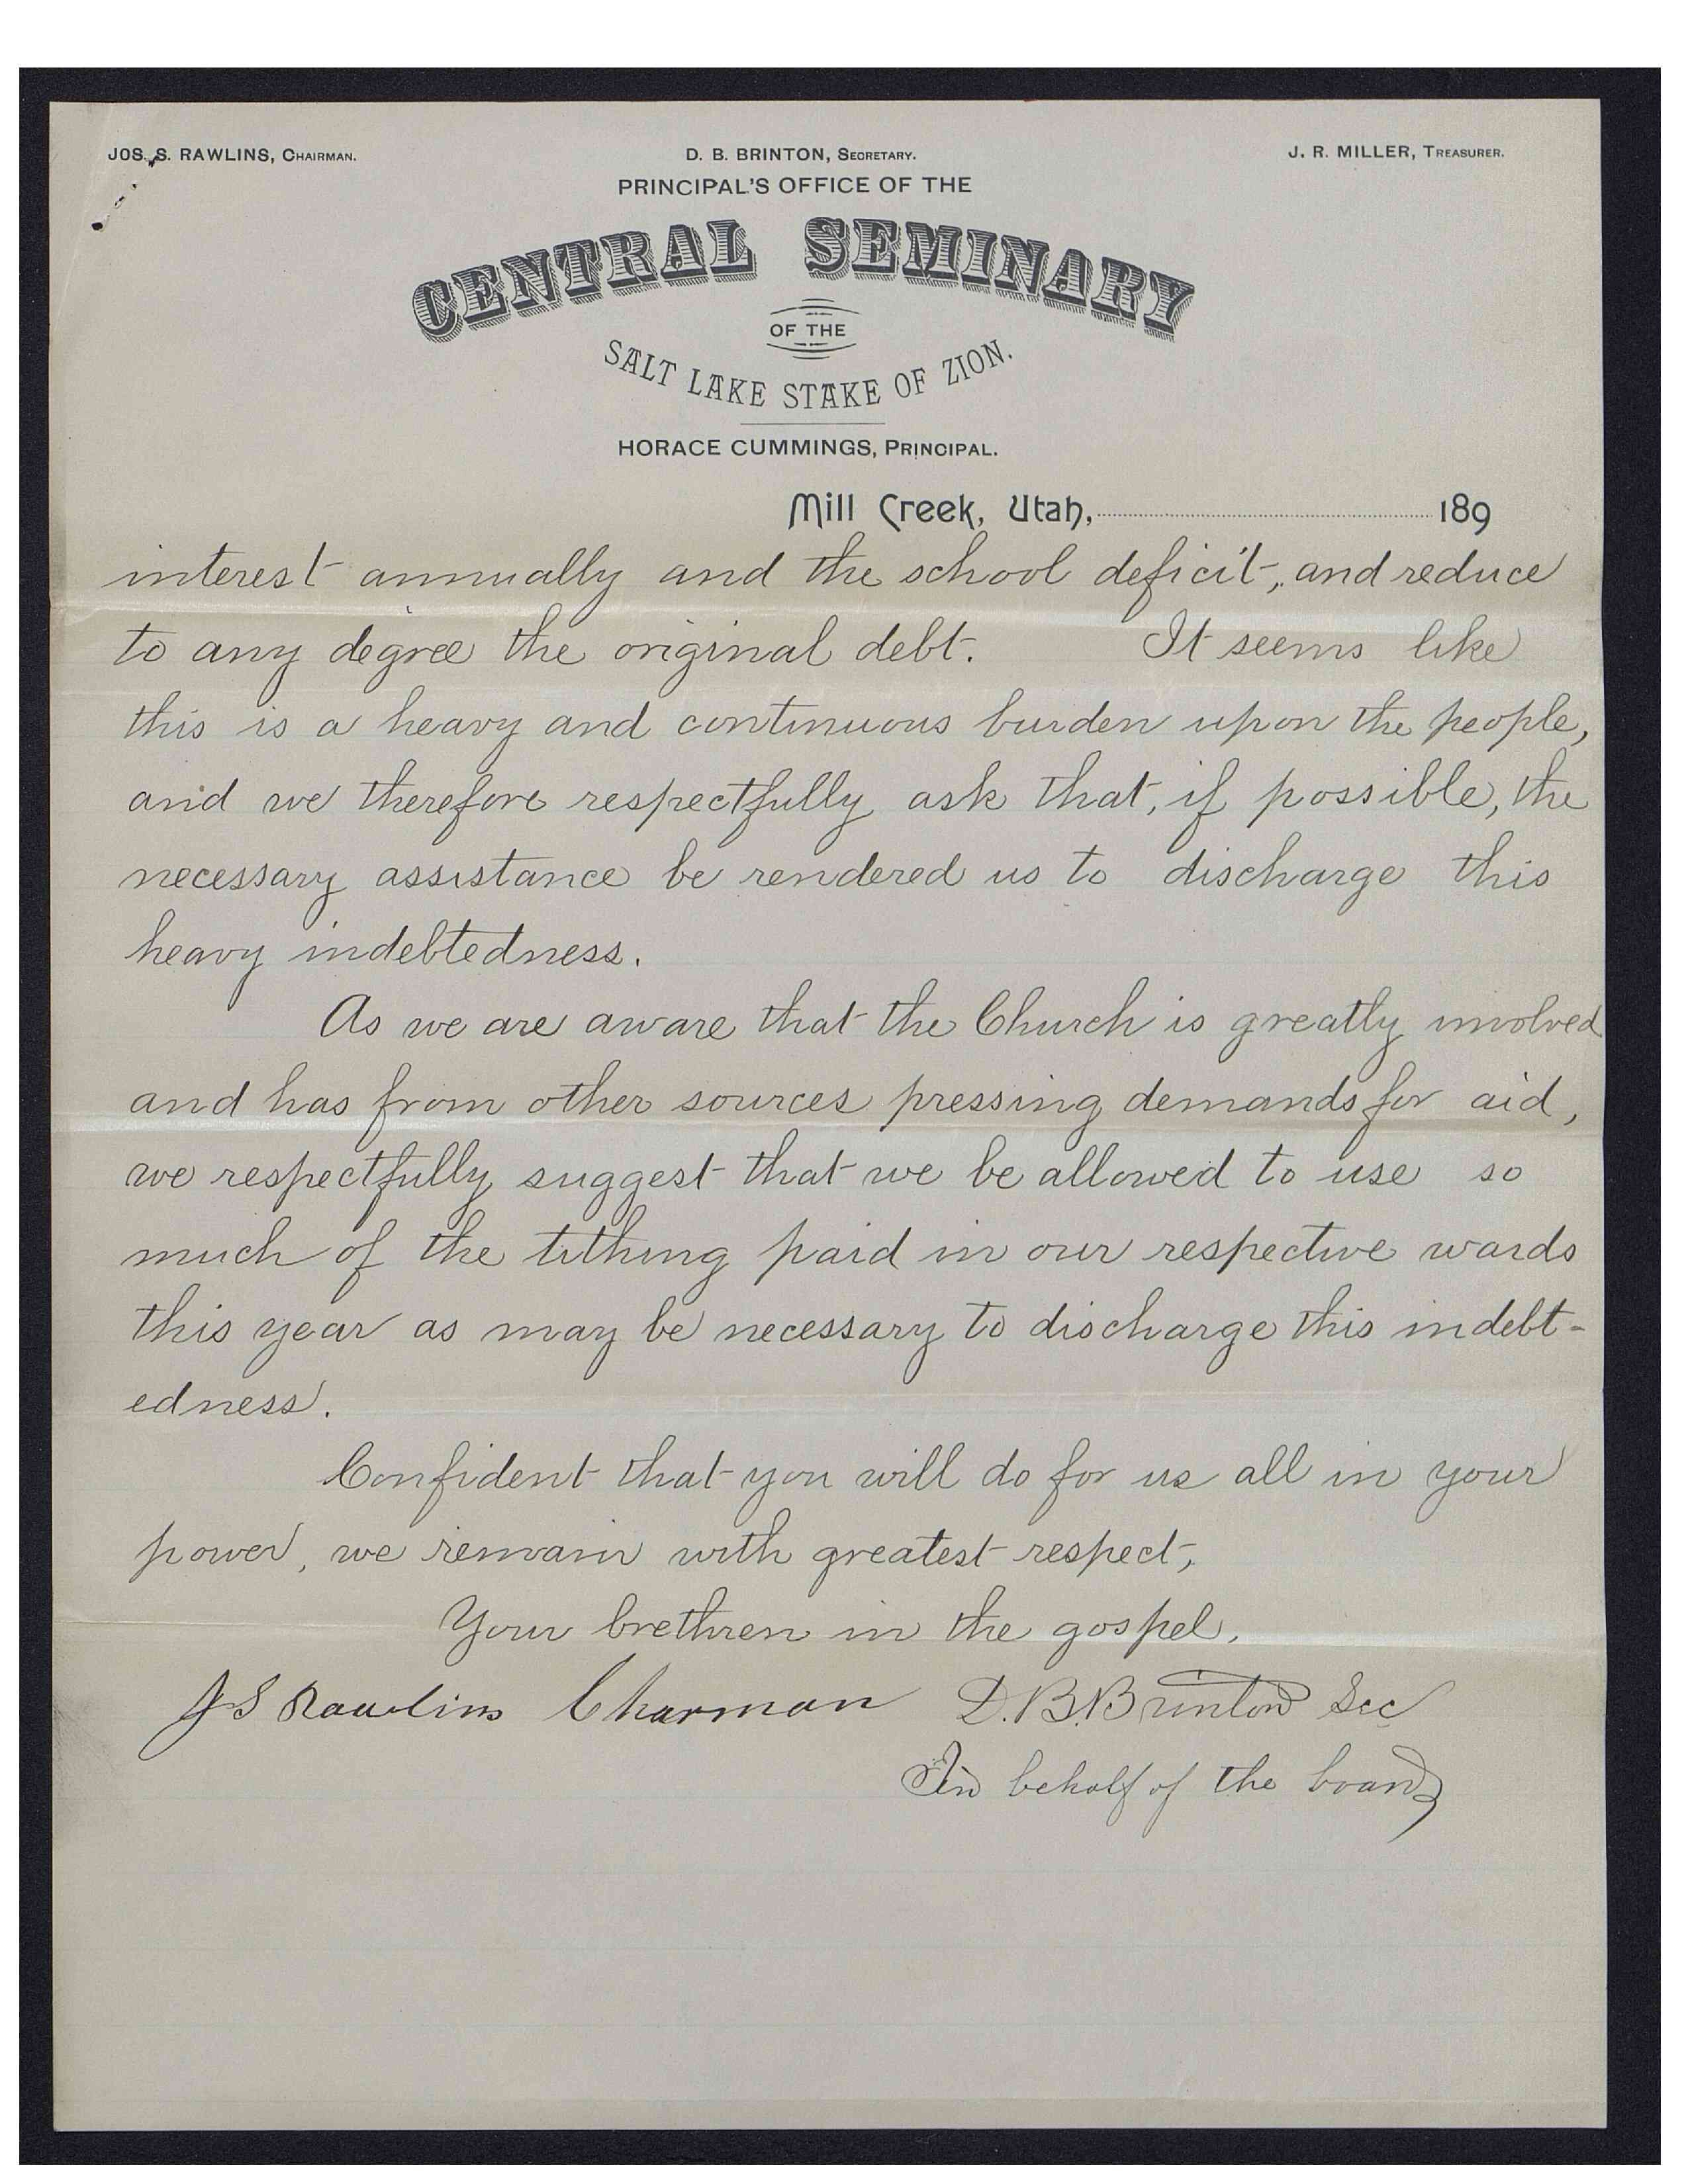 JOS. S. RAWLINS, CHAIRMAN.
D. B. BRINTON, SECRETARY.
J. R. MILLER, TREASURER.
PRINCIPAL'S OFFICE OF THE
CENTRAL SEMINARY
OF THE
SALT LAKE STAKE OF ZION.
HORACE CUMMINGS, PRINCIPAL.
Mill Creek, Utah, 189
interest annually and the school deficit, and reduce
to any degree the original debt. It seems like
this is a heavy and continuous burden upon the people,
and we therefore respectfully ask that, if possible, the
necessary assistance be rendered us to discharge this
heavy indebtedness.
As we are aware that the Church is greatly involved
and has from other sources pressing demands for aid,
we respectfully suggest that we be allowed to use so
much of the tithing paid in our respective wards
this year as may be necessary to discharge this indebt-
edness.
Confident that you will do for us all in your
power, we remain with greatest respect,
Your brethren in the gospel,
J S Rawlins Charman D. B. Brinton Sec
In behalf of the board